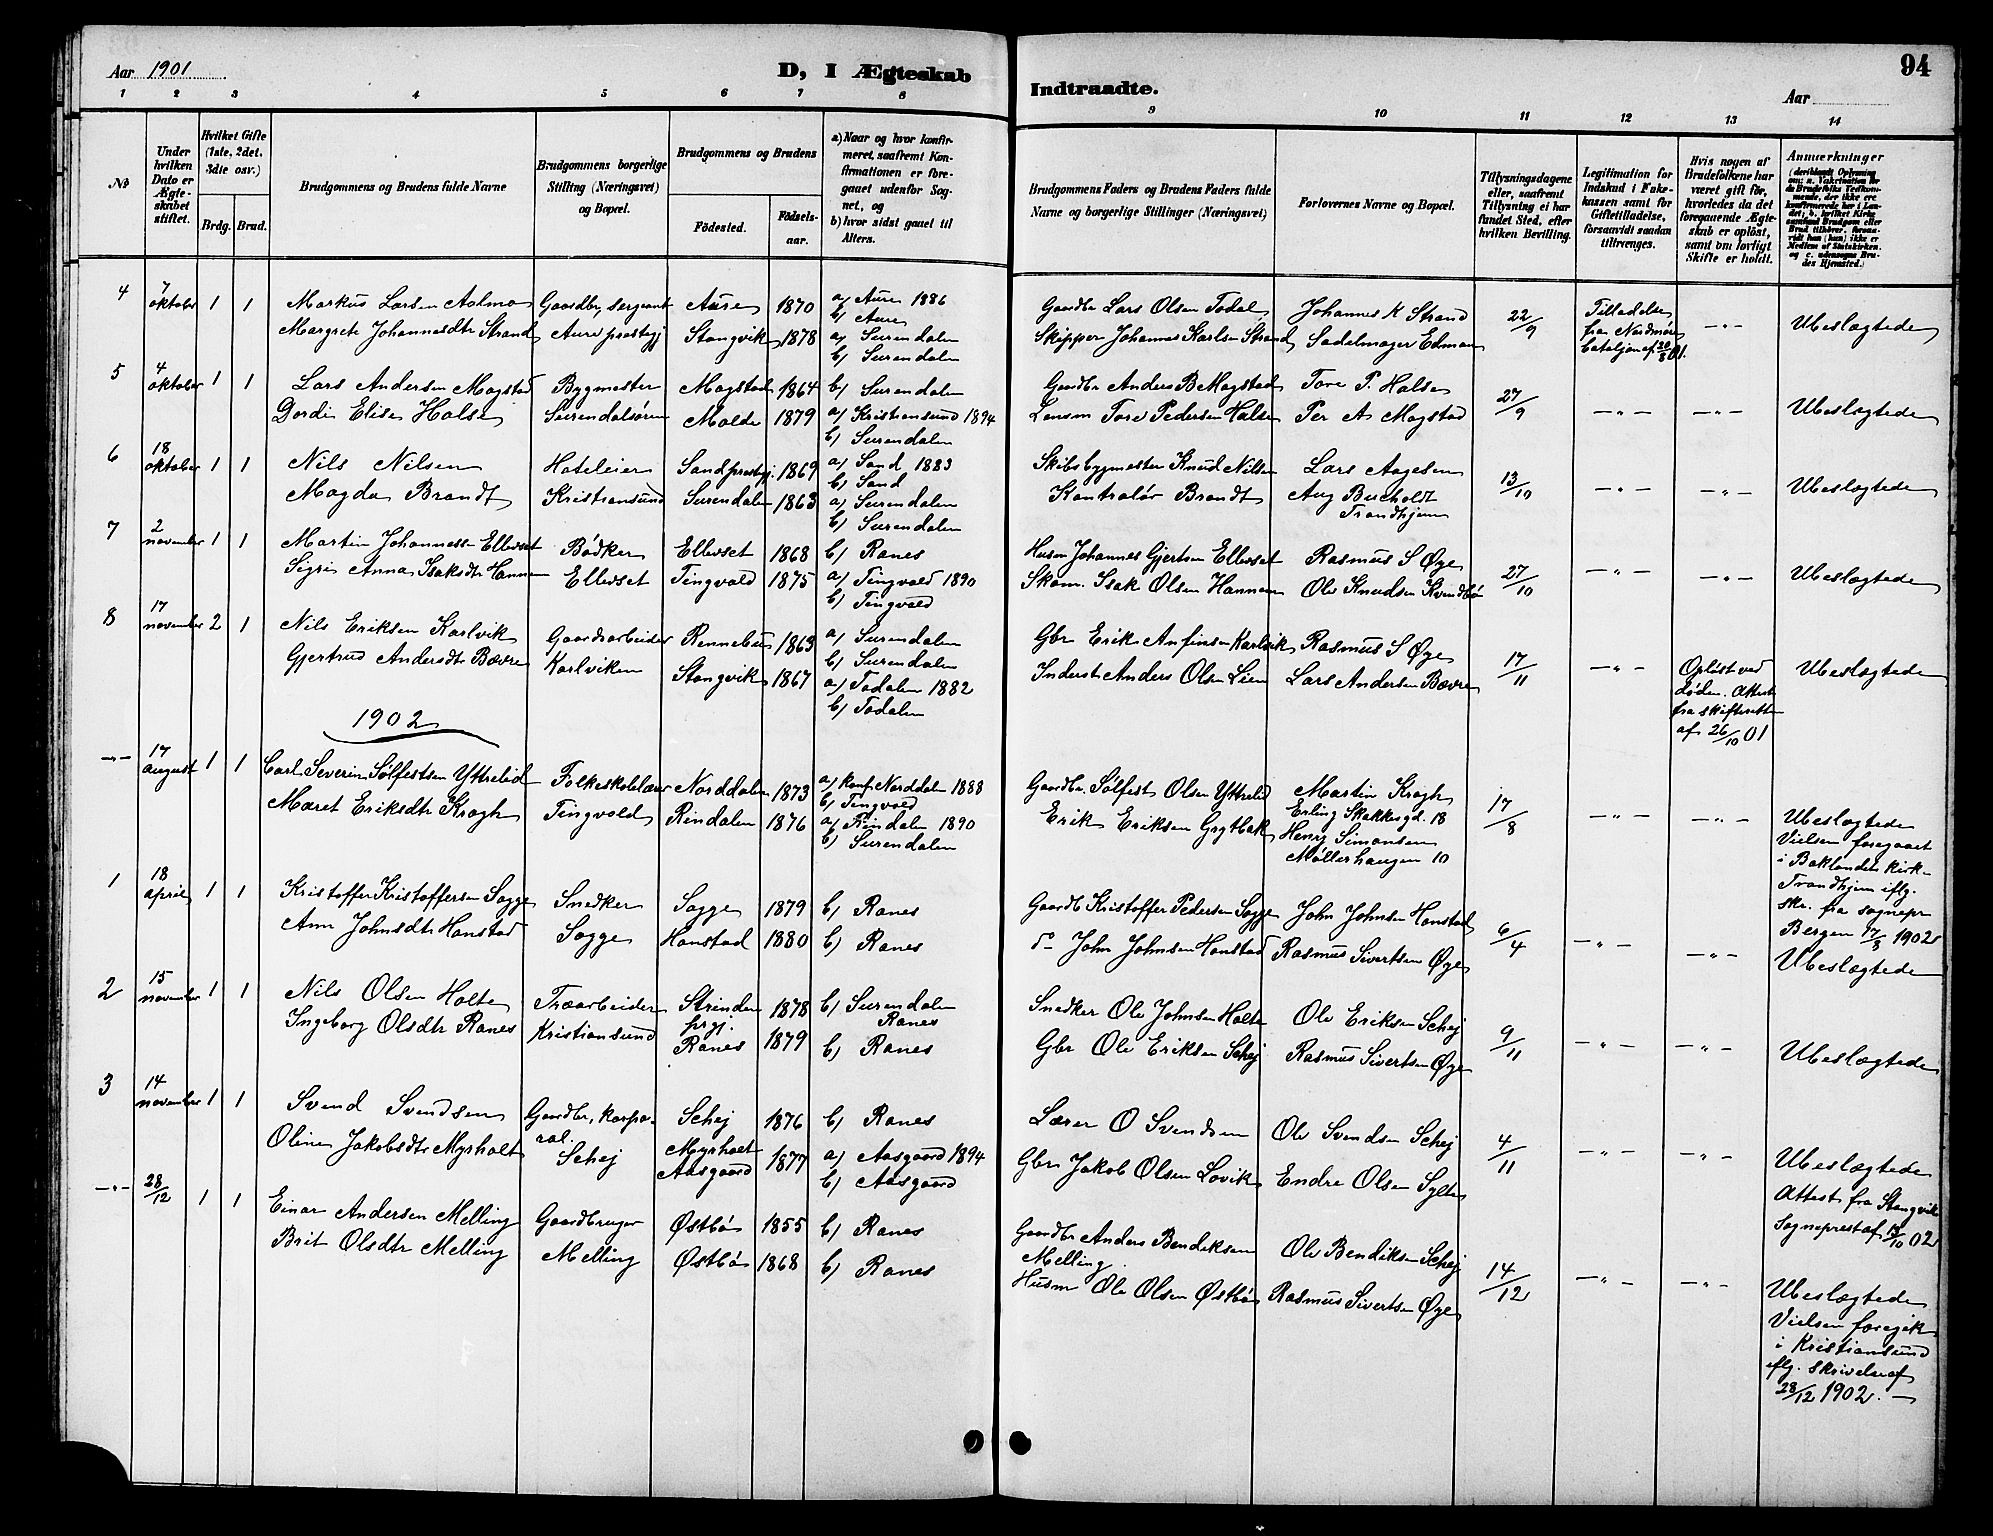 Aar 1901
D, I Ægteskab
Indtraadte.
94
Aar
1 2 3 4 5 6 7 8 9 10 11 12 13 14
No
Under hvilken Dato er Ægteskabet stiftet.
Hvilket Gifte (1ste, 2det, 3die osv.)
Brdg. Brud.
Brudgommens og Brudens fulde Navne
Brudgommens borgerlige Stilling (Næringsvei) og Bopæl.
Brudgommens og Brudens
Födested.
Födselsaar.
a) Naar og hvor konfirmeret, saafremt Konfirmationen er foregaaet udenfor Sognet, og
b) hvor sidst gaaet til Alters.
Brudgommens Faders og Brudens Faders fulde Navne og borgerlige Stillinger (Næringsvei)
Forlovernes Navne og Bopæl.
Tillysningsdagene eller, saafremt Tillysning ei har fundet Sted, efter hvilken Bevilling.
Legitimation for Indskud i Enkekassen samt for Giftetilladelse, forsaavidt saadan tiltrænges.
Hvis nogen af Brudefolkene har været gift før, hvorledes da det foregaaende Ægteskab er oplöst, samt om lovligt Skifte er holdt.
Anmærkninger
4 7 oktober 1 1 Markus Larsen Aalmo Gaardbr, sergeant Aure 1870 a) Aure 1886 Gaardbr Lars Olsen Todal Johannes K Strand 22/9 Tilladelse
b) Aure
Margrete Johannesdtr Strand Aure prestgj Stangvik 1878 a) Surendalen Skipper Johannes Karlsen Strand Sadelmager Edman fra Nordmøre — " — Ubeslægtede
b) Surendalen bataljon af 20/8 01.
5 4 oktober 1 1 Lars Andersen Mogstad Bygmester Mogstad 1864 b) Surendalen Gaardbr Anders B Mogstad Tore P. Halse 27/9
Dordi Elise Halse Surendalsøren Molde 1879 a) Kristiansund 1894 Lensm Tore Pedersen Halse Per A Mogstad — " — — " — Ubeslægtede
b) Surendalen
6 18 oktober 1 1 Nils Nilsen Hoteleier Sand prestgj. 1869 a) Sand 1883 Skibsbygmester Knud Nilsen Lars Aagesen 13/10
b) Sand
Magda Brandt Kristiansund Surendalen 1863 a) Surendalen Kontrolør Brandt Aug Bucholdt — " — — " — Ubeslægtede
b) Surendalen Trondhjem
7 2 november 1 1 Martin Johannessn Ellevset Bødker Ellevset 1868 b) Ranes Husm Johannes Gjertsen Ellevset Rasmus S Øye 27/10
Sigri Anna Isaksdtr Hannem Ellevset Tingvold 1875 a) Tingvold 1890 Skom. Isak Olsen Hannem Ole Knudsen Kvendbø — " — — " — Ubeslægtede
b) Tingvold
8 17 november 2 1 Nils Eriksen Karlvik Gaardsarbeider Rennebu 1863 a) Surendalen Gbr Erik Anfinsen Karlvik Rasmus S Øye 17/11
b) Surendalen
Gjertrud Andersdtr Bævre Karlviken Stangvik 1867 a) Todalen 1882 Inderst Anders Olsen Lien Lars Andersen Bævre — " — Opløst ved Ubeslægtede
b) Todalen døden. Attest
fra skifteretten
af 26/10 01
1902
— " — 17 august 1 1 Carl Severin Sølfestsen Ytterlid Folkeskolelærer Norddalen 1873 a) konf Norddalen 1888 Gaardbr. Sølfest Olsen Ytterlid Martin Krogh 17/8
b) Tingvold Erling Skakkesgd. 18
Maret Eriksdtr Krogh Tingvold Rindalen 1876 a) Rindalen 1890 Erik Eriksen Grytbak Henry Simonsen — " — — " — Ubeslægtede
b) Surendalen Møllerhaugen 10 Vielsen foregaaet
i Baklandets kirke
Trondhjem iflg.
skr. fra sognepr
Bergen 17/9 1902
1 18 april 1 1 Kristoffer Kristoffersen Sogge Snedker Sogge 1879 b) Ranes Gaardb Kristoffer Pedersen Sogge John Johnsen Honstad 6/4
Ane Johnsdtr Honstad Sogge Honstad 1880 b) Ranes do John Johnsen Honstad Rasmus Sivertsen Øye — " — — " — Ubeslægtede
2 15 november 1 1 Nils Olsen Holte Træarbeider Strinden 1878 b) Surendalen Snedker Ole Johnsen Holte Ole Eriksen Schej 9/11
prgj. Ranes
Ingeborg Olsdtr Ranes Kristiansund Ranes 1879 b) Ranes Gbr Ole Eriksen Schej Rasmus Sivertsen Øye — " — — " — Ubeslægtede
3 14 november 1 1 Svend Svendsen Gaardbr, korpo- Schej 1876 b) Ranes Lærer O Svendsen Ole Svendsen Schej 4/11
ral. Myrholt
Oline Jakobsdtr Myrholt Schej Aasgaard 1877 a) Aasgaard 1894 Gbr Jakob Olsen Løvik Endre Olsen Sylte — " — — " — Ubeslægtede
b) Aasgaard Attest fra Stangvik
Sogneprest af 02
— " — 28/12 1 1 Einar Andersen Melling Gaardbruger Østbø 1855 b) Ranes Gaardbr Anders Bendiksen Ole Bendiksen Schej 14/12
Melling
Brit Olsdtr Melling Melling Østbø 1868 b) Ranes Husm Ole Olsen Østbø Rasmus Sivertsen Øye — " — — " — Ubeslægtede
Vielsen foregik
i Kristiansund
iflg. skrivelse af
28/12 1902. —